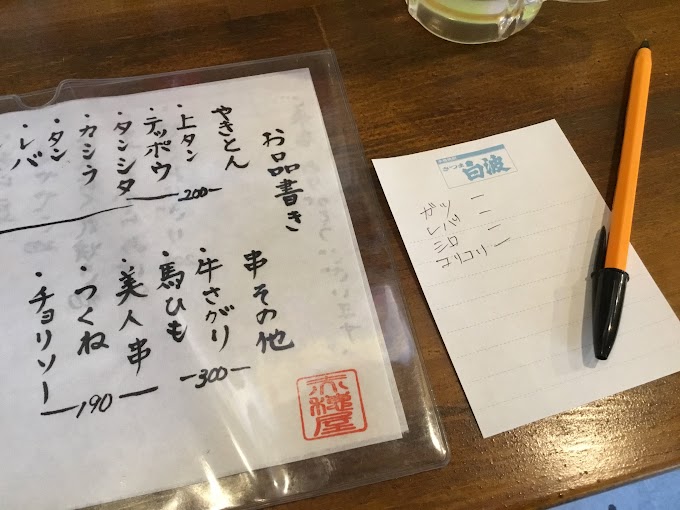 お品書き
やきとん
・上タン
・テッポウ
―200―
・タンシタ
・カシラ
・タン
・レバ
串その他
・牛さがり
・馬ひも
―300―
・美人串
・つくね
・チョリソー
―190―
さつま
白波
ガツ 一
レバ 一
シロ 二
コリコリ 一